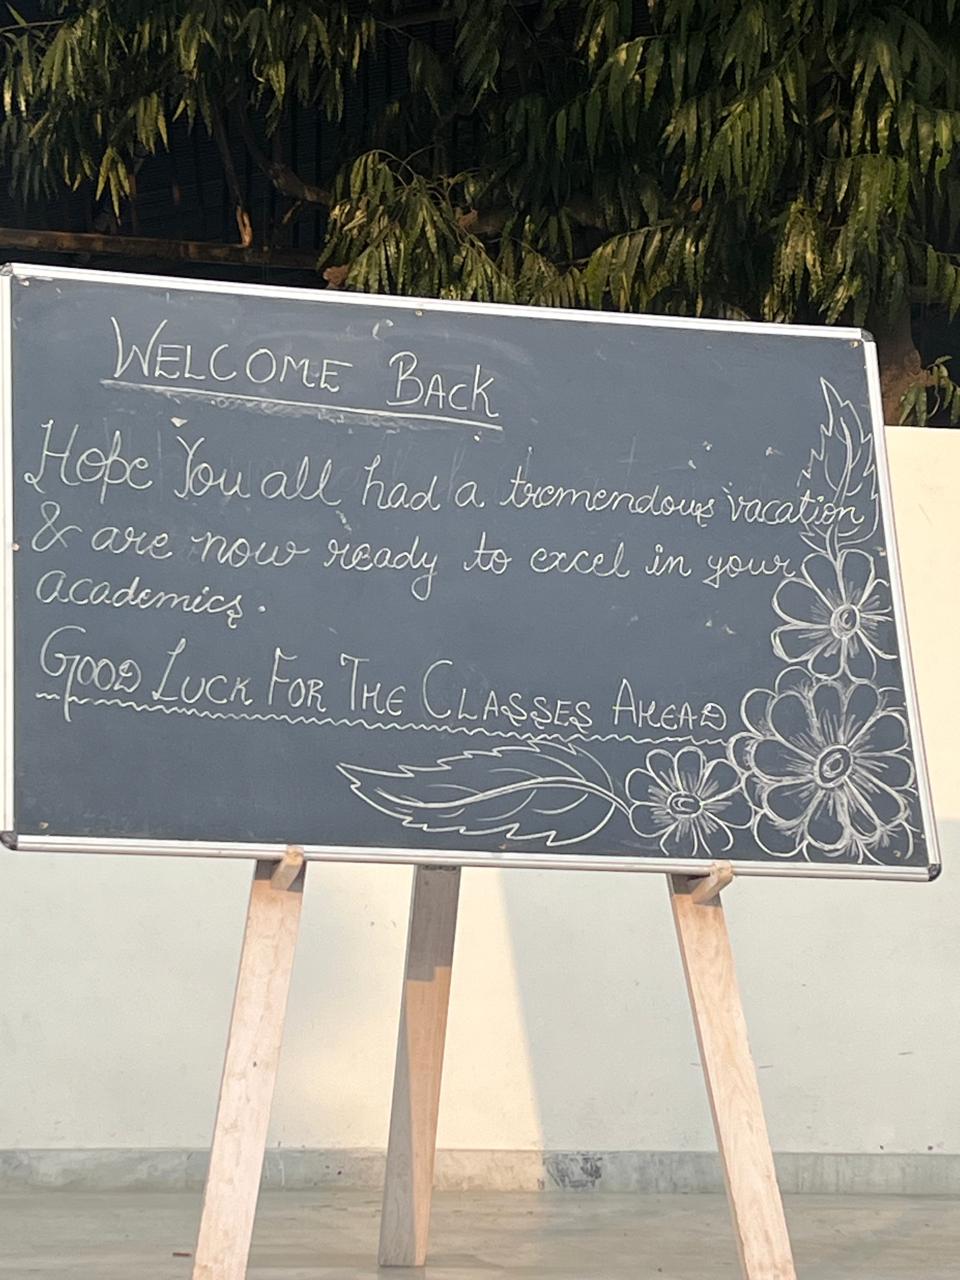 WELCOME BACK
Hope You all had a tremendous vacation
& are now ready to excel in your
academics.
GOOD LUCK FOR THE CLASSES AHEAD